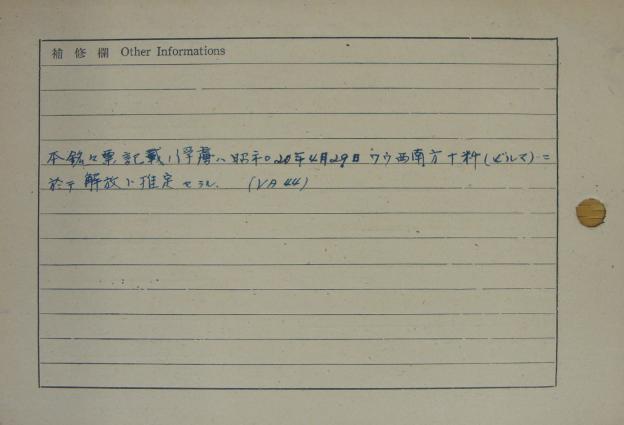 補修欄 Other Informations
本銘々票記載ノ俘虜ハ昭和20年4月29日 ワウ西南方十粁(ビルマ)ニ
於テ解放ト推定セラル. (VA 44)